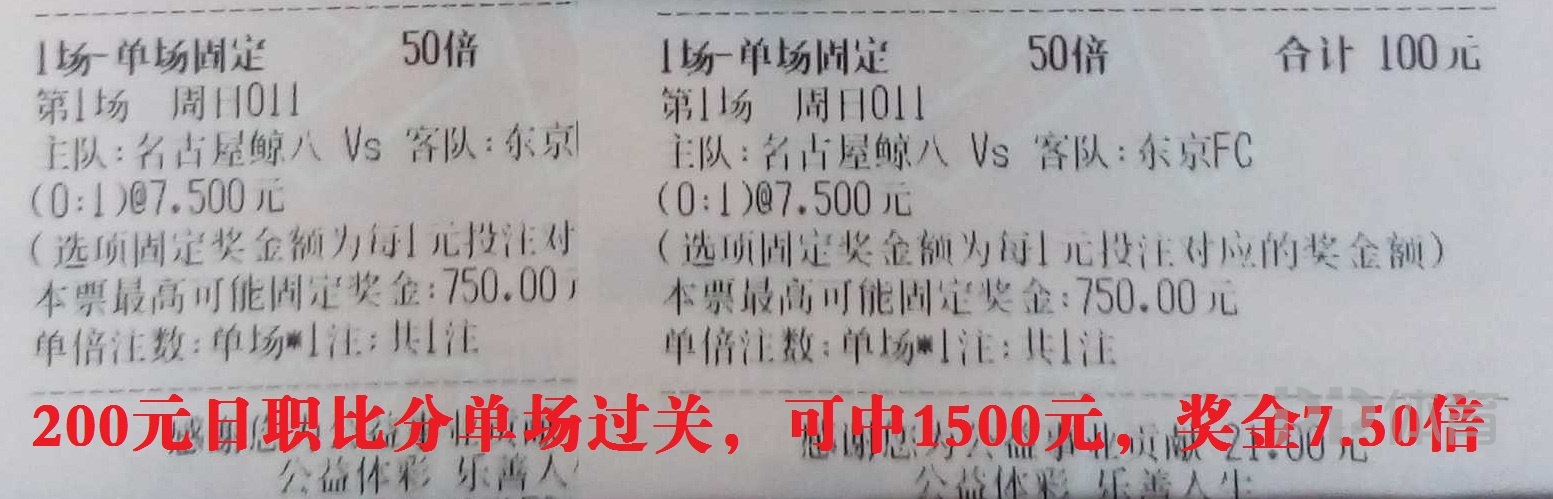 1场-单场固定 50倍
第1场 周日011
主队:名古屋鲸八 Vs 客队:东京
(0:1)@7.500元
(选项固定奖金额为每1元投注对
本票最高可能固定奖金:750.00
单倍注数:单场*1注;共1注
公益体彩 乐善人
1场-单场固定 50倍 合计 100元
第1场 周日011
主队:名古屋鲸八 Vs 客队:东京FC
(0:1)@7.500元
(选项固定奖金额为每1元投注对应的奖金额)
本票最高可能固定奖金:750.00元
单倍注数:单场*1注;共1注
感谢您为公益事业贡献 21.00元
公益体彩 乐善人生
200元日职比分单场过关，可中1500元，奖金7.50倍
体育